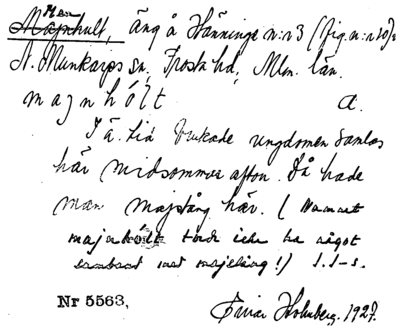 Man
Majnhult, äng å Hänninge n:r 3 (fig. n:r 10) =
N. Munkarps sn, Frosta hd, Mlm. län.
majnhólt a.
I ä. tid brukade ungdomen samlas
här midsommar afton. Då hade
man majstång här. (Namnet
majnhólt torde icke ha något
samband med majstång!) I. I-s.
Nr 5563, Einar Holmberg. 1927.